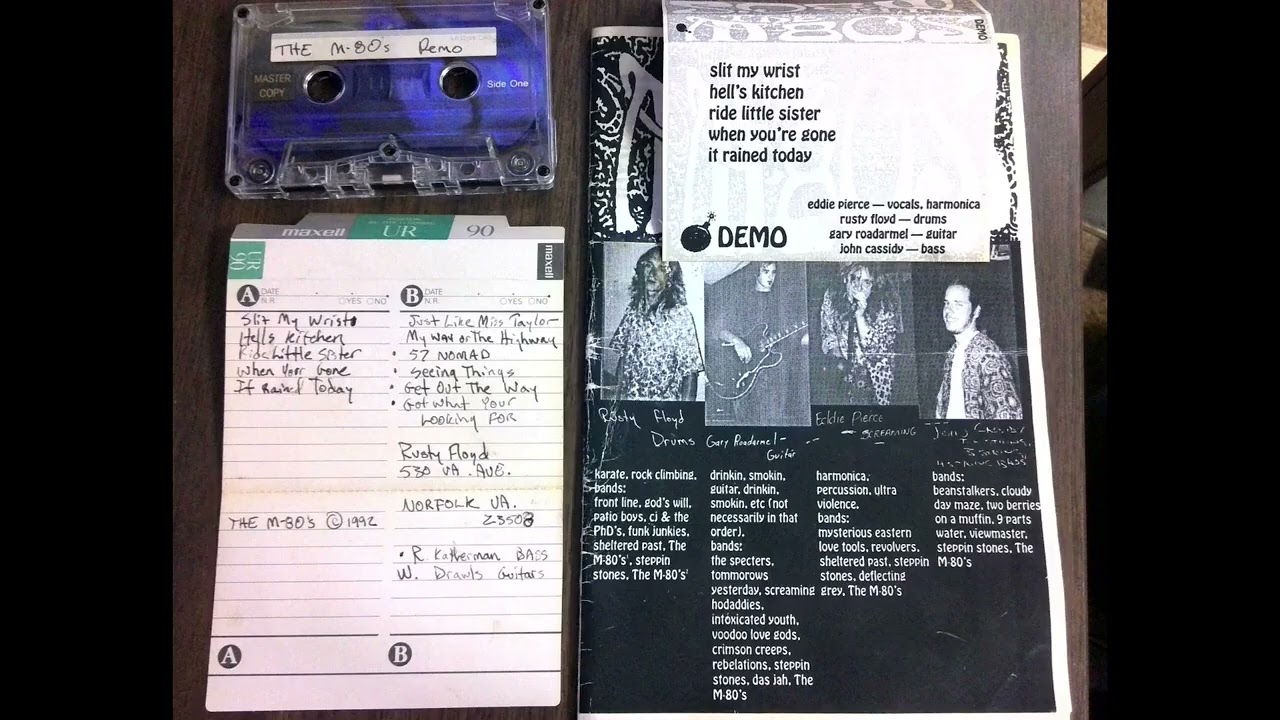 THE M-80's Demo
MASTER
COPY
Side One
maxell UR 90
UR
90
maxell
A DATE
N.R. YES NO
B DATE
N.R. YES NO
Slit My Wrist
Hells Kitchen
Ride Little Sister
When Your Gone
It Rained Today
Just Like Miss Taylor
My Way or The Highway
• 57 NOMAD
• Seeing Things
• Get Out The Way
• Got What Your
Looking FOR
Rusty Floyd
530 VA. AVE.
NORFOLK VA.
23508
THE M-80's © 1992
• R. Katherman BASS
W. Drawls Guitars
A
B
M-80s
DEMO
slit my wrist
hell's kitchen
ride little sister
when you're gone
it rained today
eddie pierce — vocals, harmonica
rusty floyd — drums
gary roadarmel — guitar
john cassidy — bass
DEMO
Rusty Floyd
Drums
Gary Roadarmel -
Guitar
Eddie Pierce
- SCREAMING
John Cassidy
karate, rock climbing,
bands:
front line, god's will,
patio boys, cj & the
PhD's, funk junkies,
sheltered past, The
M-80's', steppin
stones, The M-80's'
drinkin, smokin,
guitar, drinkin,
smokin, etc (not
necessarily in that
order),
bands:
the specters,
tommorows
yesterday, screaming
hodaddies,
intoxicated youth,
voodoo love gods,
crimson creeps,
rebelations, steppin
stones, das jah, The
M-80's
harmonica,
percussion, ultra
violence,
bands:
mysterious eastern
love tools, revolvers,
sheltered past, steppin
stones, deflecting
grey, The M-80's
bands:
beanstalkers, cloudy
day maze, two berries
on a muffin, 9 parts
water, viewmaster,
steppin stones, The
M-80's